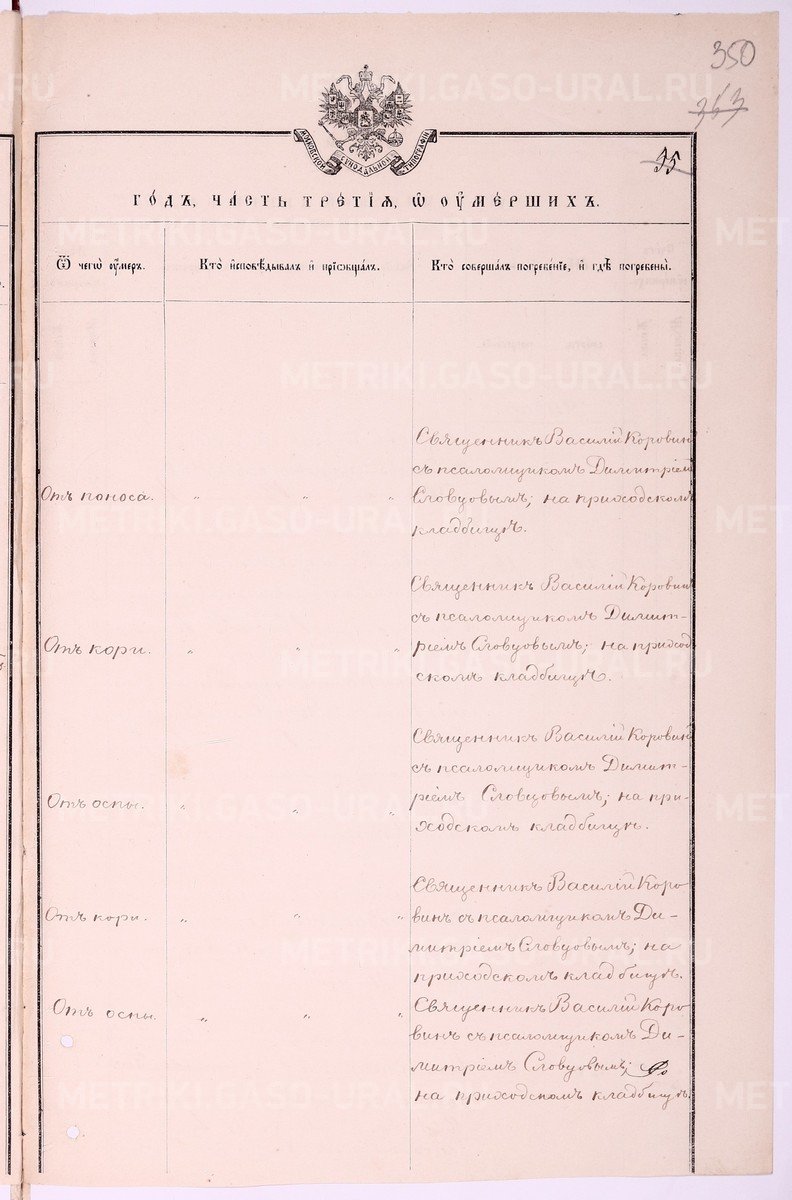 350
363
МОСКОВСКОЙ СѴНОДАЛЬНОЙ ТИПОГРАФІИ
35
ГО́ДЪ, ЧА́СТЬ ТРЕ́ТІѦ, Ѡ҆ ОУ҆МЕ́РШИХЪ.
Ѿ чегѡ̀ оу҆́меръ.
Кто̀ и҆сповѣ́дывалъ и҆ прїѡбща́лъ.
Кто̀ соверша́лъ погребе́нїе, и҆ гдѣ̀ погребены̀.
Священникъ Василій Коровин
съ псаломщикомъ Димитріем
Отъ поноса. „ „ „ Словцовымъ; на приходскомъ
кладбищѣ.
Священникъ Василій Коровин
съ псаломщикомъ Димит-
Отъ кори. „ „ „ ріемъ Словцовымъ; на приход
скомъ кладбищѣ.
Священникъ Василій Коровин
съ псаломщикомъ Димит-
Отъ оспы. „ „ „ ріемъ Словцовымъ; на при-
ходскомъ кладбищѣ.
Священникъ Василій Коро
Отъ кори. „ „ „ винъ съ псаломщикомъ Ди-
митріемъ Словцовымъ; на
приходскомъ кладбищѣ.
Отъ оспы. „ „ „ Священникъ Василій Коро
винъ съ псаломщикомъ Ди-
митріемъ Словцовымъ;
на приходскомъ кладбищѣ.
METRIKI.GASO-URAL.RU